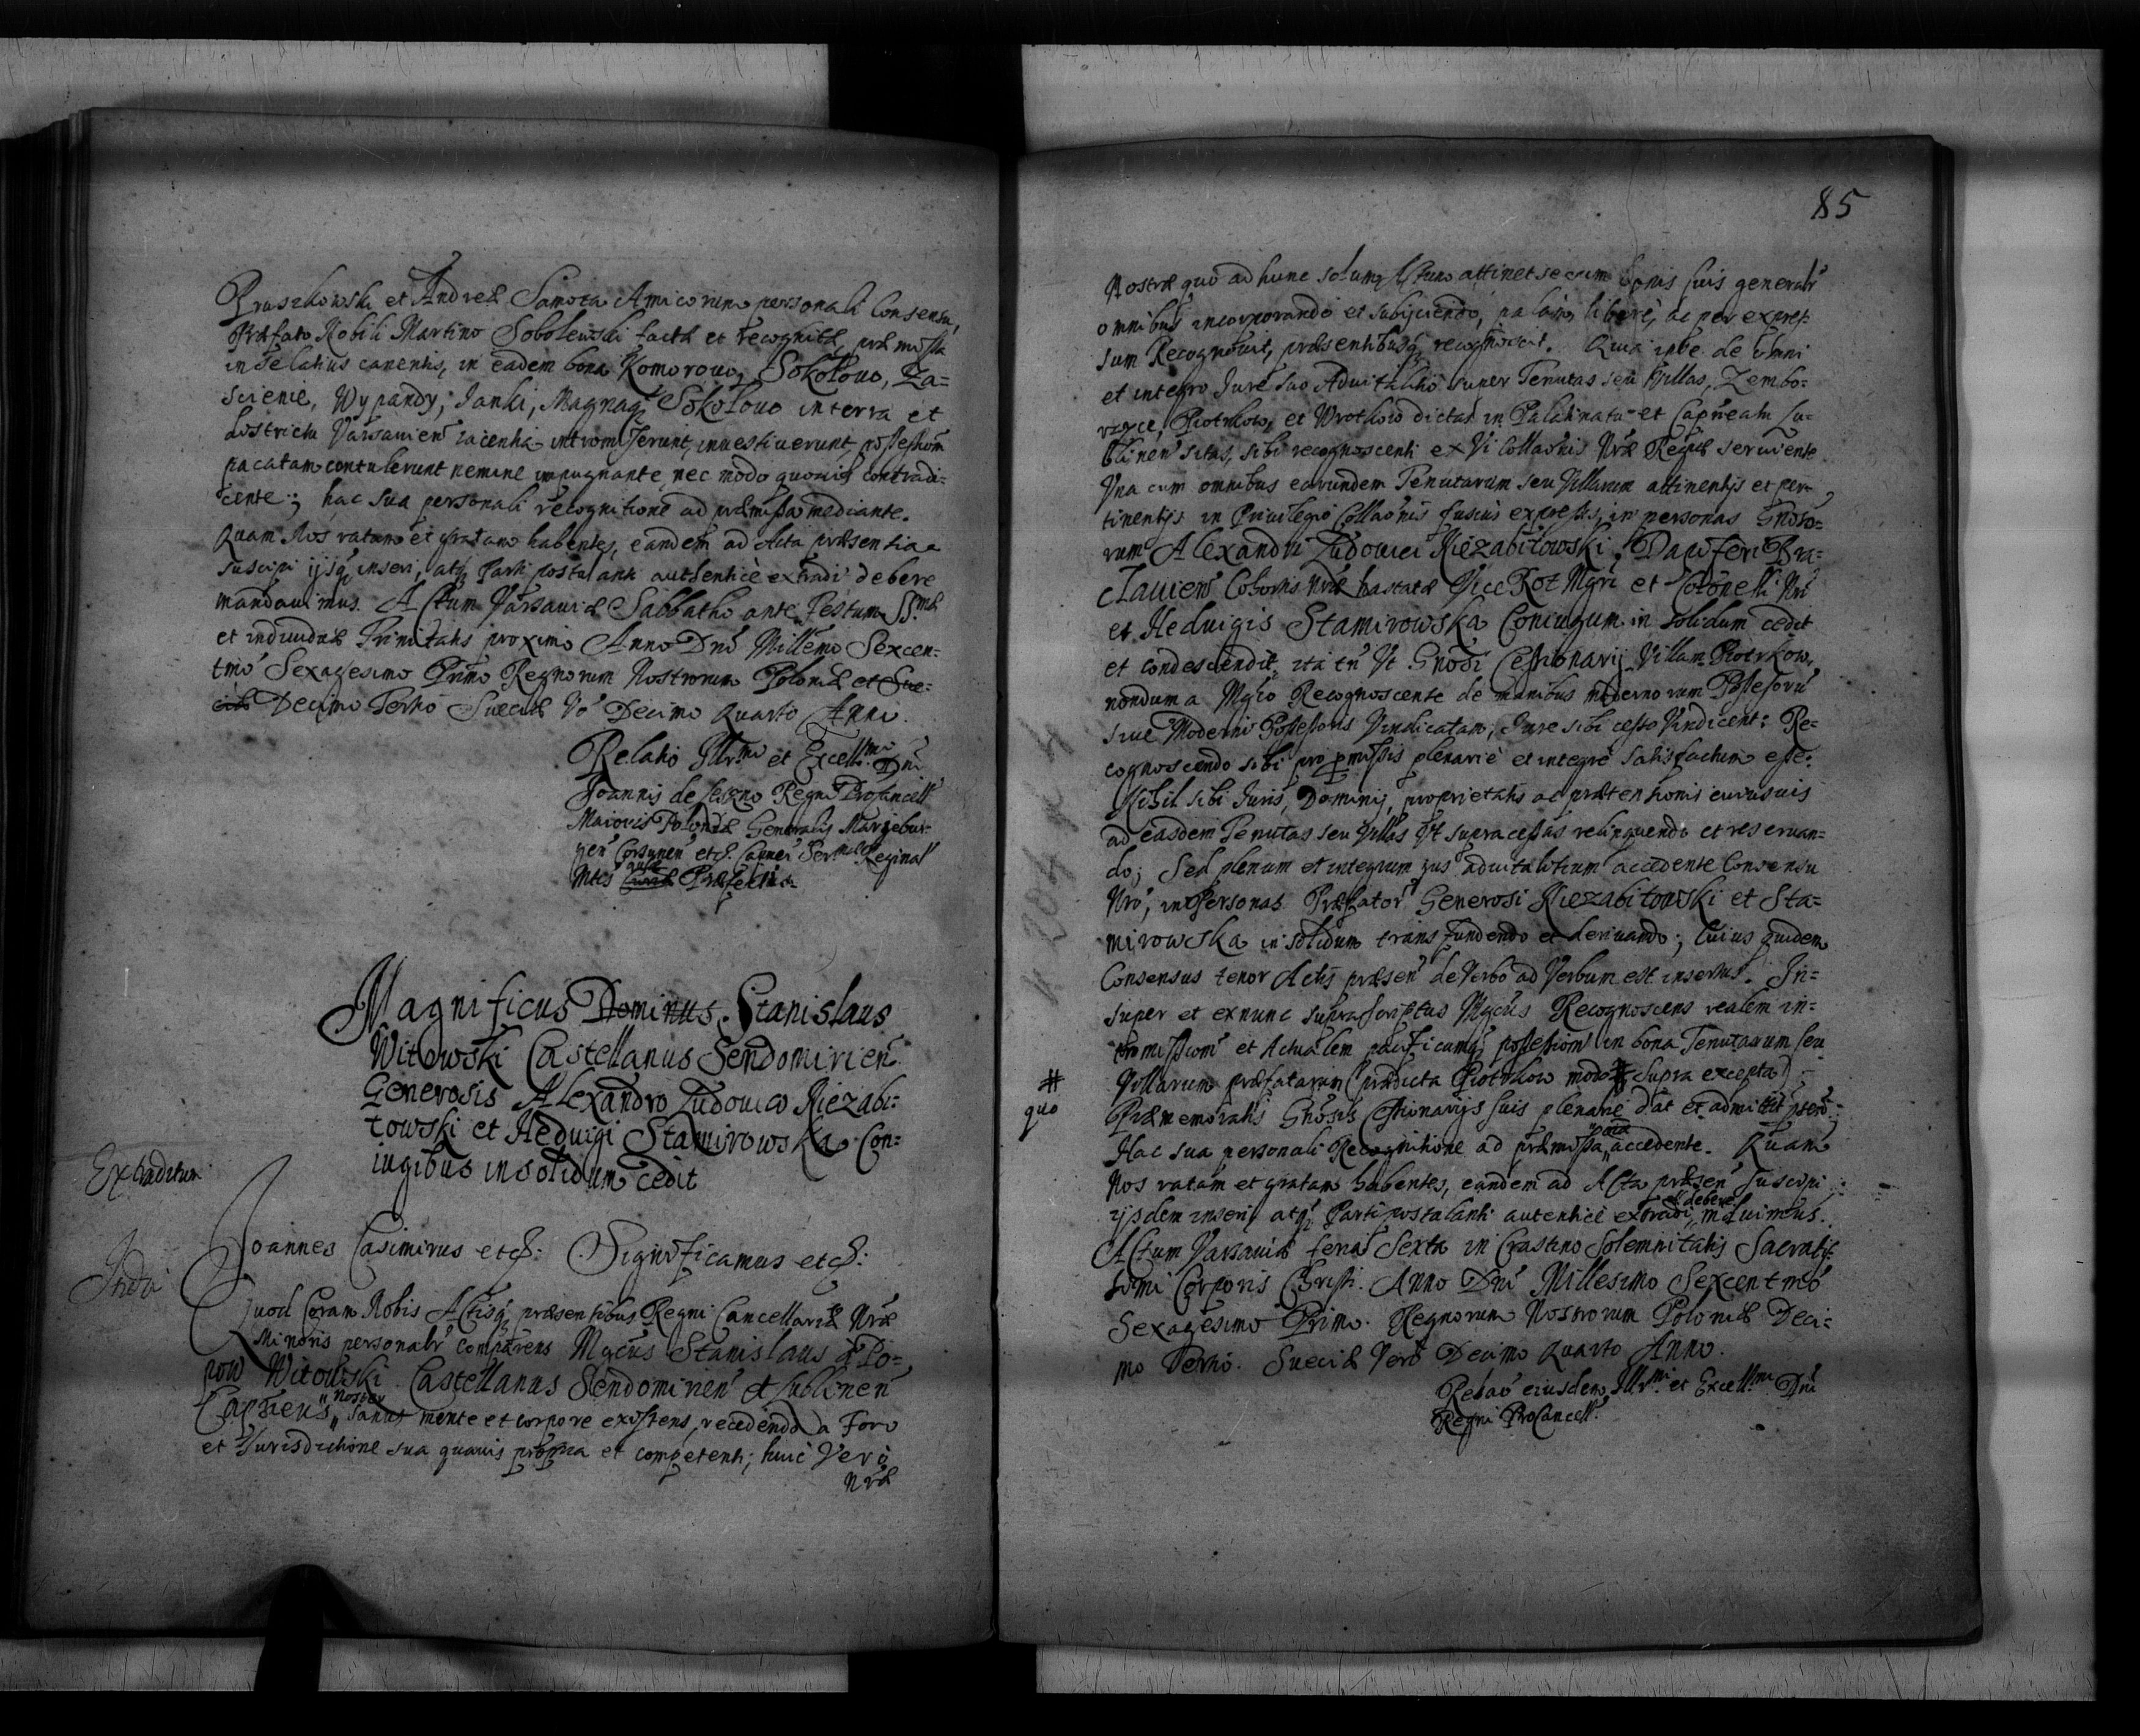 Pruszkowski et Andreæ Samota Amicorum personali Consensu,
Præfato Nobili Martino Sobolewski factæ et recognitæ, præmissa
in se latius canentis, in eadem bona Komorowo, Sokołowo, Za=
scienie, Wypandy, Janki, Magnaq Sokołowo in terra et
districtu Varsavien iacentia intromiserunt, investiverunt, possessionem
pacatam contulerunt nemine impugnante nec modo quovis contradi=
cente; hac sua personali recognitione ad præmissa mediante.
Quam Nos ratam et gratam habentes, eandem ad Acta præsentia
suscipi ijsq inseri, atq Parti postulanti authenticè extradi debere
mandavimus. Actum Varsaviæ Sabbatho ante Festum SS.mæ
et individuæ Trinitatis proximo Anno Dni Millemo Sexcen=
tmo Sexagesimo Primo Regnorum Nostrorum Poloniæ et Sue=
ciæ Decimo Tertio Sueciæ Vo Decimo Quarto Anno.
Relatio Illr.mi et Excell.mi Dni
Joannis de Leszno Regni Procancell
Maioris Poloniæ Generalis Mariæbur=
gen Corsunen etc. Cancer Ser.mæ Reginal
Mtis Præfecti
Magnificus Dominus Stanislaus
Witowski Castellanus Sendomirien
Generosis Alexandro Ludovico Niezabi=
towski et Hedvigi Stamirowska Con=
iugibus in solidum cedit
Extraditum
Joannes Casimirus etc: Significamus etc:
Quod Coram Nobis Actisq præsentibus Regni Cancellariæ Nræ
Minoris personalr comparens Mgcus Stanislaus à Po=
pow Witowski Castellanus Sendomirien et Lublinen
Capneus "Noster" sanus mente et corpore existens, recedendo a Foro
et Jurisdictione sua quavis propria et competenti; huic Verò
Nræ
85
Nostræ quo ad hunc solum Actum attinet se cum bonis suis generalr
omnibus incorporando et subijciendo, palam, liberè, ac per expres=
sum Recognovit, præsentibusq recognoscit. Quia ipse de omni
et integro Jure suo Advitalitio super Tenutas seu Villas, Zembo=
rzyce, Piotrkow, et Wrotkow dictas in Palatinatu et Capneatu Lu=
blinen sitas, sibi recognoscenti ex Vi Collaonis Nræ Regiæ serviente
Una cum omnibus earundem Tenutarum seu Villarum attinentijs et per=
tinentijs in Privilegio Collaonis fusius expressis, in personas Gnoso=
rum Alexandri Ludovici Niezabitowski, Dapiferi Bra=
claviens Cohortis Nræ hastatæ Vice Rot Mgri et Colonelli Nri
et Hedvigis Stamirowska Coniugum in solidum cedit
et condescendit, ita tn Ut Gnosi Cessionarij Villam Piotrkow
nondum a Mgco Recognoscente de manibus modernorum Possessorū
sive Moderni Possessoris Vindicatam, Jure sibi cesso Vindicent: Re=
cognoscendo sibi pro pmissis plenariè et integrè satisfactum esse.
Nihil sibi Juris, Dominij, proprietatis ac prætensionis cuiusvis
ad easdem Tenutas seu Villas Ut supra cessas relinquendo et reservan=
do; Sed plenum et integrum jus advitalitium accedente Consensu
Nro, in Personas Præfator Generosi Niezabitowski et Sta=
mirowska in solidum transfundendo et derivando; cuius quidem
Consensus tenor Actis præsen de Verbo ad Verbum est insertus. In=
super et ex nunc suprascriptus Mgcus Recognoscens realem in=
tromissionem et Actualem pacificamq possessionem in bona Tenutarum seu
Villarum præfatarum (prædicta Piotrkow modo # supra excepta)
# quo
Præmemoratis Gnosis Cessionarijs suis plenariè dat et admittit
Hac sua personali Recognitione ad præmissa accedente. Quam
Nos ratam et gratam habentes, eandem ad Acta præsen suscipi
ijsdem inseri, atq Parti postulanti autenticè extradi "debere" mdvimus.
Actum Varsaviæ Feria Sexta in Crastino Solemnitatis Sacratis=
simi Corporis Christi. Anno Dni Millesimo Sexcentmo
Sexagesimo Primo. Regnorum Nostrorum Poloniæ Deci=
mo Tertio. Sueciæ Verò Decimo Quarto Anno.
Relao eiusdem Illr.mi et Excell.mi Dni
Regni ProCancell.